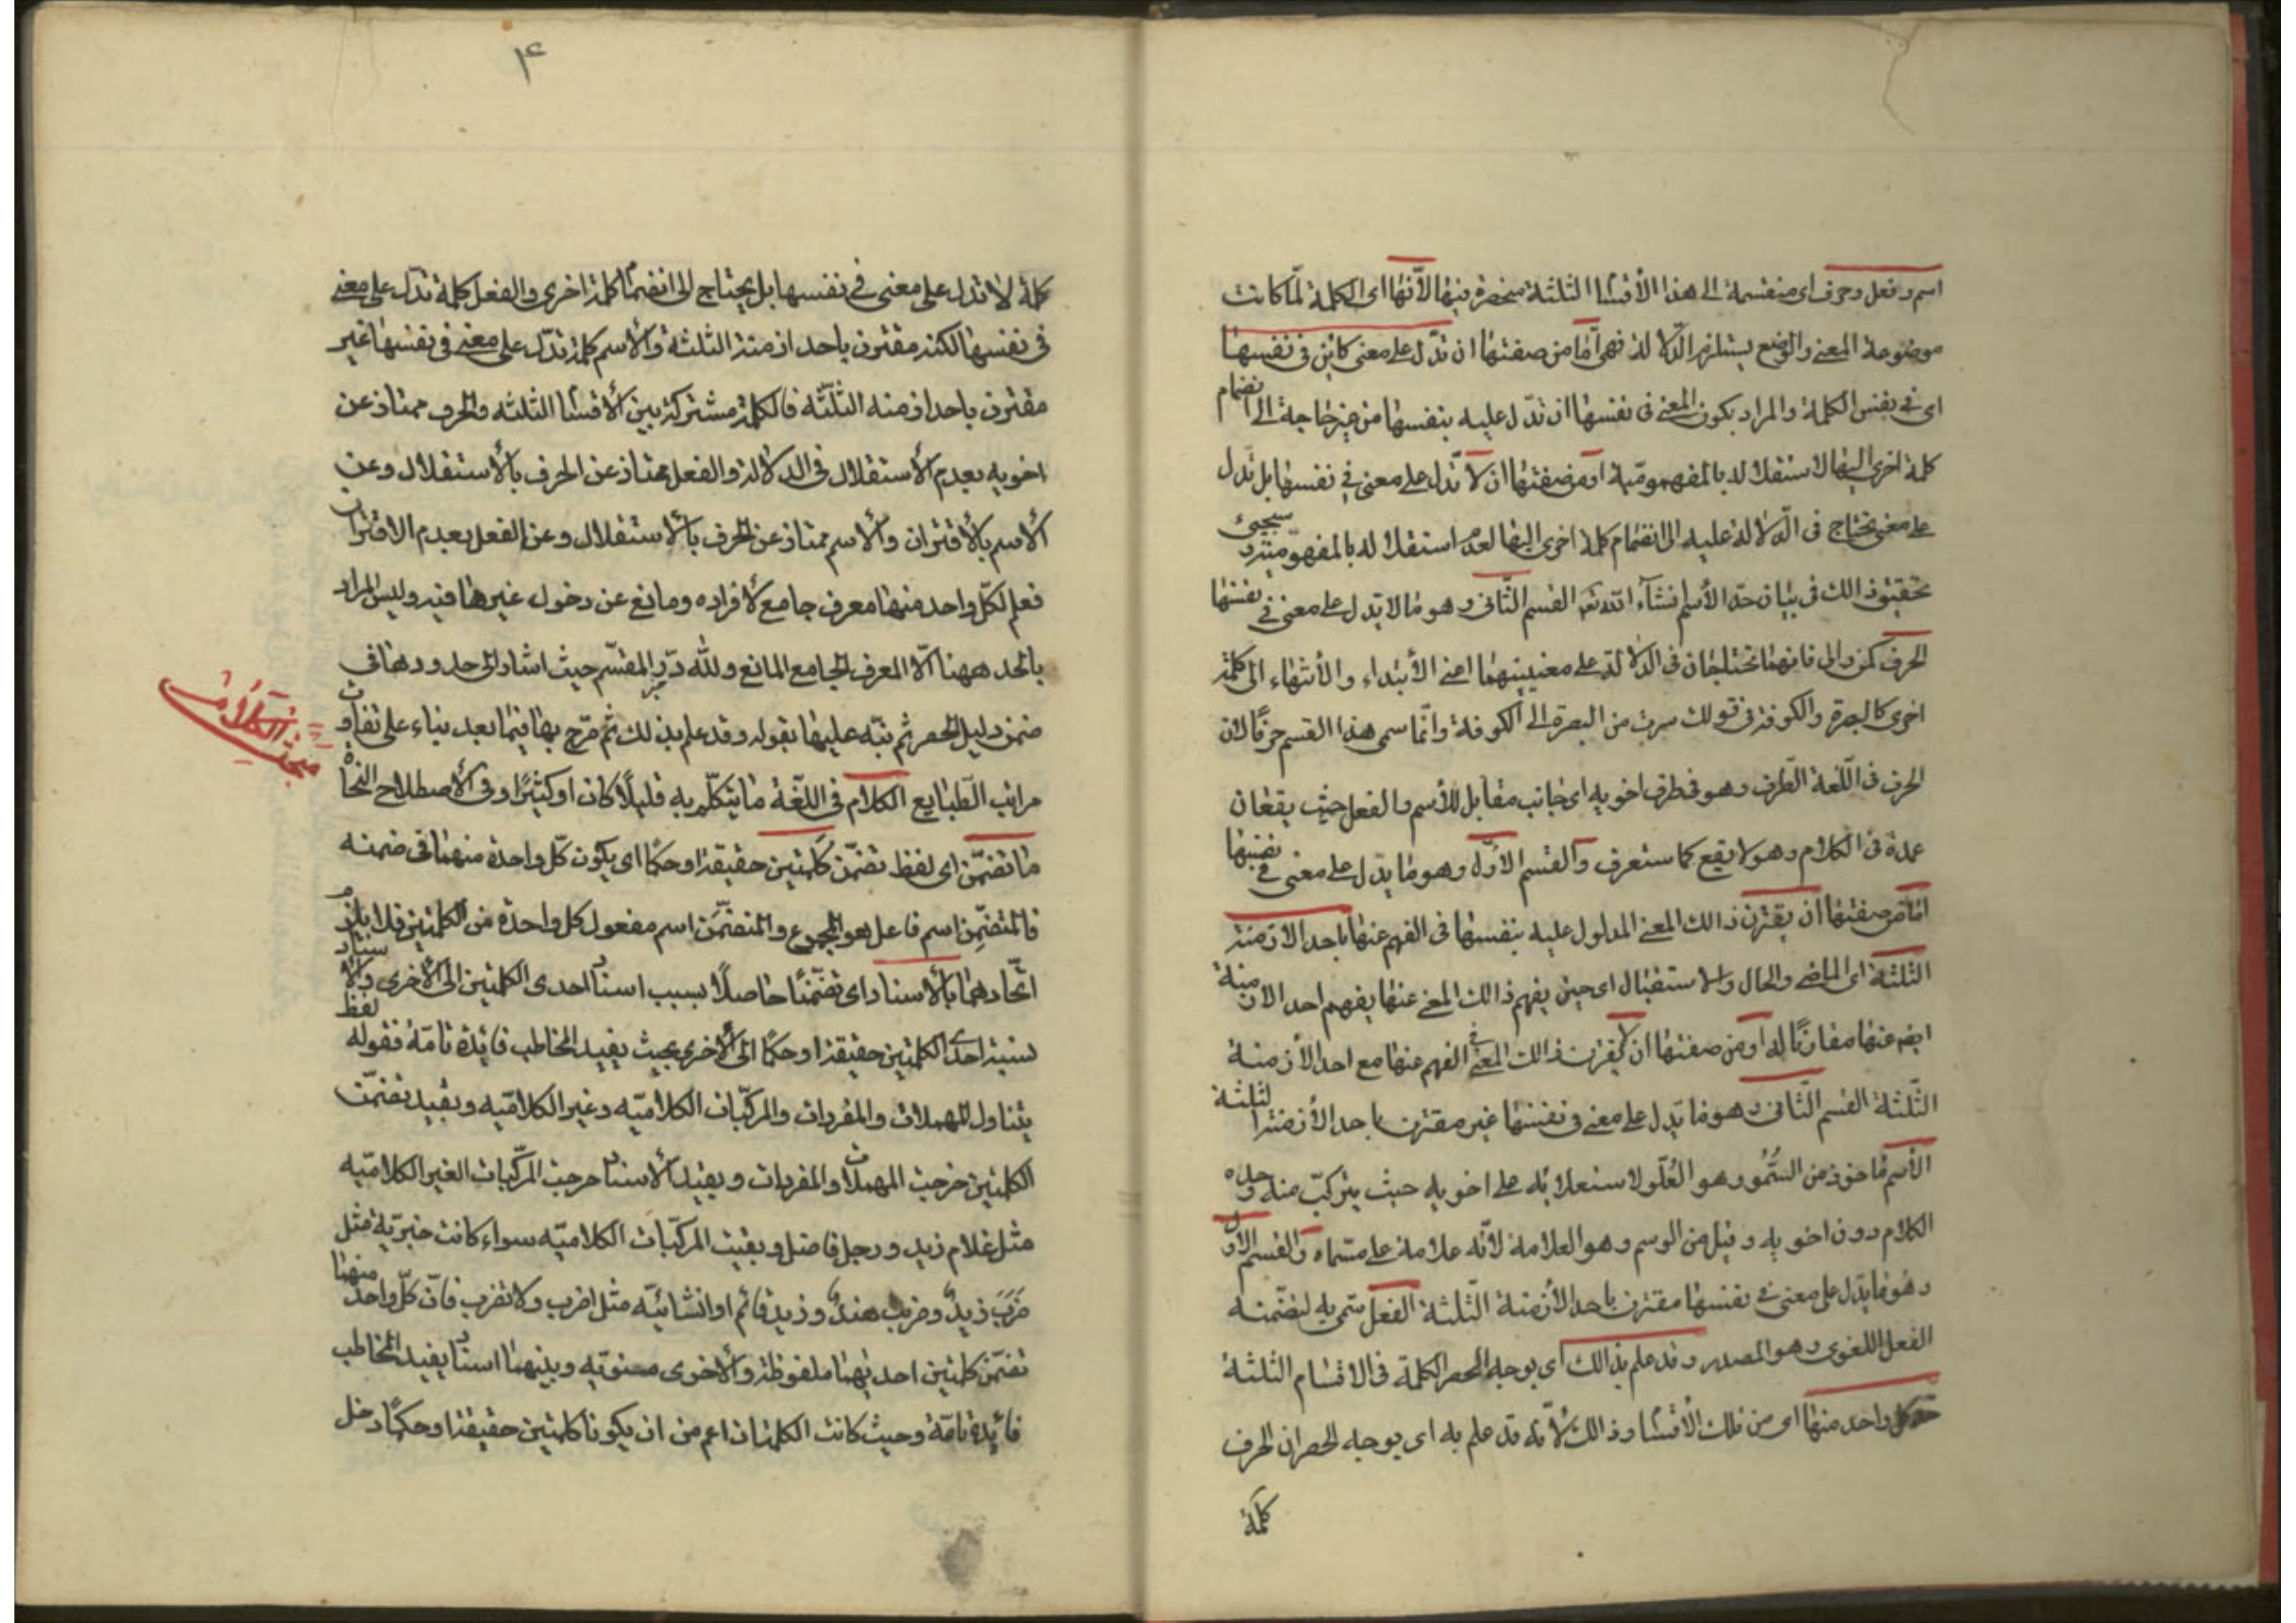 اسم وفعل وحرف اى منقسمة الى هذا الأقسٰا الثلثة منحصرة فيها لأنّها اى الكلمة لمّا كانت
موضوعة المعنى والوضع يستلزم الدّلالة فهى امّا من صفتها ان تدّل على معنى كائن فى نفسها
اى فى نفس الكلمة والمراد بكون المعنى فى نفسها ان تدّل عليه بنفسها من غير حاجة الى انضمام
كلمة اخرى اليها لاستقلاله بالمفهوميّة او من صفتها ان لا تدّل على معنى فى نفسها بل تدل
على معنى تحتاج فى الدّلالة عليه الى انضمام كلمة اخرى اليها لعدم استقلاله بالمفهوميّة وسيجىء
تحقيق ذالك فى بيان حدّ الأسم انشآء الله تعه القسم الثّانى وهو ما لا تدل على معنى فى نفسها
الحرف كمن والى فانهما تحتاجان فى الدّلالة على معنيينهما اعنى الأبتداء والأنتهاء الى كلمة
اخرى كالبصرة والكوفة فى قولك سرت من البصرة الى الكوفة وانّما سمى هذا القسم حرفًا لانّ
الحرف فى اللّغة الطّرف وهو فى طرف اخويه اى جانب مقابل للأسم والفعل حيث يقعان
عمدة فى الكلام وهو لا يقع كما ستعرف والقسم الاوّل وهو ما يدّل على معنى فى نفسها
امّا من صفتها ان يقترن ذالك المعنى المدلول عليه بنفسها فى الفهم عنها باحد الازمنة
الثلثة اى الماضى والحال والاستقبال اى حين يفهم ذالك المعنى عنها يفهم احد الازمنة
ايضه عنها مقارنًا له او من صفتها ان لا يقترن ذالك المعنى فى الفهم عنها مع احد الأزمنة
الثّلثة القسم الثّانى وهو ما يدل على معنى فى نفسها غير مقترن باحد الأزمنة الثلثة
الأسم مأخوذ من السُّمُو وهو العُلّو لاستعلائه على اخويه حيث يتركبّ منه وحده
الكلام دون اخويه وقيل من الوسم وهو العلامة لأنّه علامة على مسّماه والقسم الاوّل
وهو ما يدّل على معنى فى نفسها مقترن باحد الأزمنة الثّلثة الفعل سمّى به لتضمّنه
الفعل اللغوى وهو المصدر وقد علم بذالك اى بوجه الحصر الكلمة فى الاقسام الثلثة
حدّ كل واحد منها اى من تلك الأقسٰا وذالك لأنّه قد علم به اى بوجه الحصر ان الحرف
كلمة
۴
كلمة لا تدل على معنى فى نفسها بل يحتاج الى انضمٰا كلمة اخرى والفعل كلمة تدّل على معنى
فى نفسها لكنه مقترن باحد ازمنة الثلثة والأسم كلمة تدّل على معنى فى نفسها غير
مقترن باحد ازمنه الثلّثه فالكلمة مشتركة بين الأقسٰا الثلثه والحرف ممتاز عن
اخويه بعدم الأستقلال فى الدلالة والفعل ممتاز عن الحرف بالأستقلال وعن
الأسم بالأقتران والأسم ممتاز عن الحرف بالأستقلال وعن الفعل بعدم الاقتران
فعلم لكلّ واحد منها معرف جامع لأفراده ومانع عن دخول غيرها فيه وليس المراد
بالحد ههنا الّا المعرف الجامع المانع ولله درّ المقسّم حيث اشار الى حدودها فى
ضمن دليل الحصر ثم نبّه عليها بقوله وقد علم بذلك ثم صرّح بها فيما بعد بناء على تفاوت
مراتب الطّبايع الكلام فى اللّغة ما يتكلّم به قليلًا كان او كثيرًا وفى الأصطلاح النحاة
ما تضمّن اى لفظ تضمّن كلمتين حقيقة او حكمًا اى يكون كلّ واحدة منهما فى ضمنه
فالمتضمِّن اسم فاعل هو المجموع والمتضمَّن اسم مفعول كل واحدة من الكلمتين فلا يلزم
اتّحادهما بالأسناد اى تضمّنًا حاصلًا بسبب اسناد احدى الكلمتين الى الأخرى والاسناد
نسبة احدى الكلمتين حقيقة او حكمًا الى الأخرى بحيث يفيد المخاطب فائدة تامّة فقوله لفظ
يتناول المهملات والمفردات والمركّبات الكلاميّه وغير الكلاميّه وبقيد تضمّن
الكلمتين خرجت المهملات والمفردات وبقيد الأسناد خرجت المركّبات الغير الكلاميّه
مثل غلام زيد ورجل فاضل وبقيت المركّبات الكلاميّه سواء كانت خبريّة مثل
ضرَبَ زيدٌ وضربت هندٌ وزيد قائم او انشائيّه مثل اضرب ولا تضرب فانّ كلّ واحد منهما
تضمّن كلمتين احديهما ملفوظة والأخرى منويّه وبينهما اسنٰاد يفيد المخاطب
فائدة تامّة وحيث كانت الكلمتان اعم من ان يكونا كلمتين حقيقة او حكمًا دخل
مبحث الكلام